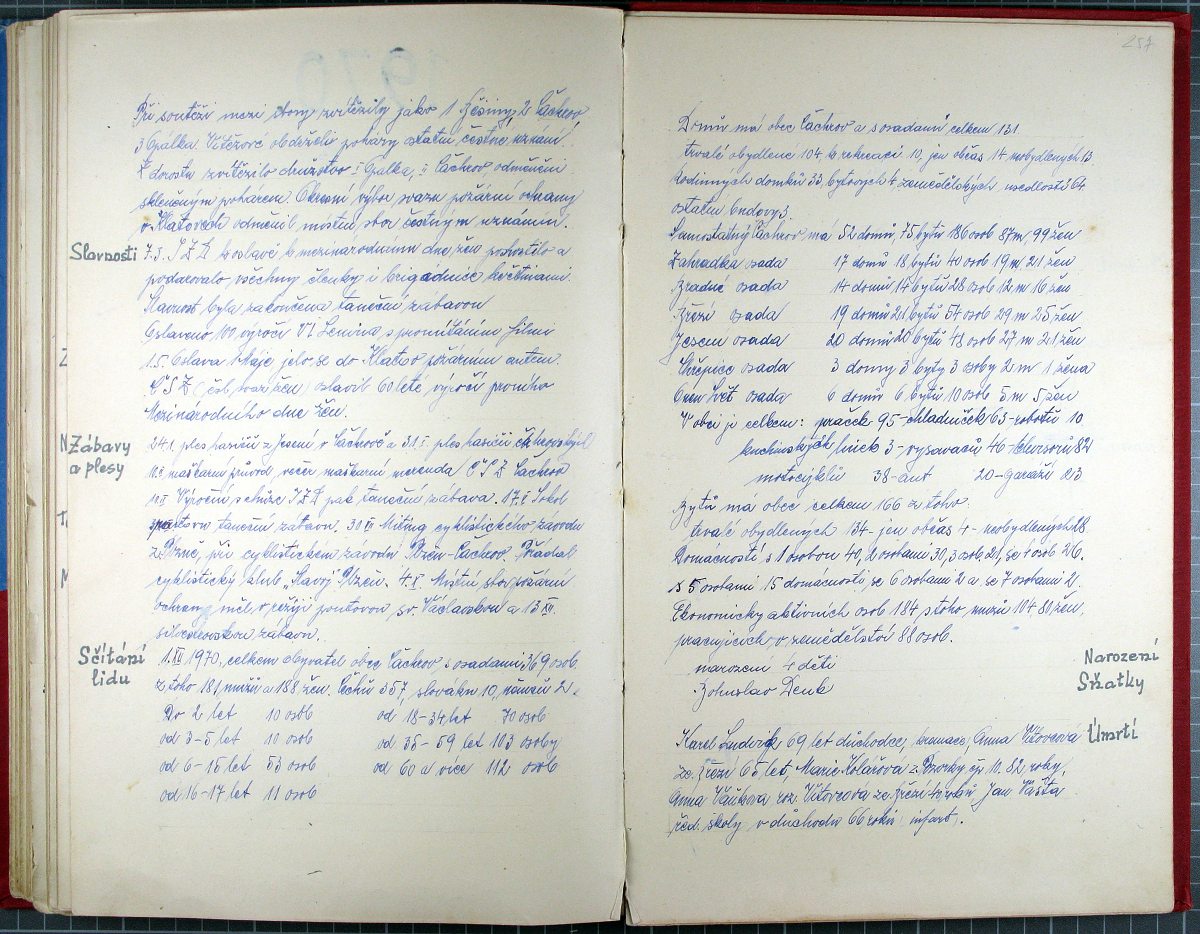 Při soutěži mezi sbory zvítězily jako 1 Běšiny, 2 Čachrov,
3 Opálka. Vítězové obdrželi poháry ostatní čestné uznání.
Z dorostu zvítězilo družstvo I Opálka, II Čachrov, odměněni
skleněným pohárem. Okresní výbor svazu požární ochrany
v Klatovech odměnil místní sbor čestným uznáním.
Slavnosti
7.3. JZD k oslavě k mezinárodnímu dne žen pohostilo a
podarovalo všechny členky i brigádnice květinami.
Slavnost byla zakončena taneční zábavou
Oslaveno 100 výročí V I Lenina s promítáním filmu
1.5. Oslava Máje jelo se do Klatov požárním autem.
ČSŽ (čsl. svaz žen) oslavil 60 leté výročí prvního
Mezinárodního dne žen.
Zábavy
a plesy
24.I. ples hasičů z Jesení v Čachrově a 31.I. ples hasičů čachrovských
maškarní průvod, večer maškarní merenda ČSŽ Čachrov
Výroční schůze JZD pak taneční zábava. 17. Sokol
taneční zábavu, 30 Miting cyklistického závodu
z Plzně, při cyklistickém závodu Plzeň-Čachrov. Pořádal
cyklistický klub "Slavoj" Plzeň. 4.X. Místní sbor požární
ochrany měl v režii pouťovou, sv. Václavskou a 13
silvestrovskou zábavu.
Sčítání
lidu
1.XII 1970, celkem obyvatel obec Čachrov s osadami 369 osob
z toho 181 mužů a 188 žen. Čechů 357, slováků 10, němců 2.
Do 2 let 10 osob od 18-34 let 70 osob
od 3-5 let 10 osob od 35-59 let 103 osoby
od 6-15 let 53 osob od 60 a více 112 osob
od 16-17 let 11 osob
257
Domů má obec Čachrov a s osadami celkem 131.
trvalé obydlené 104, k rekreaci 10, jen občas 14 neobydlených 13
Rodinných domků 33, bytových 4 zemědělských usedlostí 64
ostatní budovy 3.
Samostatný Čachrov má 52 domů, 75 bytů 186 osob 87 m 99 žen
Zahrádka osada 17 domů 18 bytů 40 osob 19 m 21 žen
Bradné osada 14 domů 14 bytů 28 osob 12 m 16 žen
Březí osada 19 domů 21 bytů 54 osob 29 m 25 žen
Jesení osada 20 domů 20 bytů 48 osob 27 m 21 žen
Chřepice osada 3 domy 3 byty 3 osoby 2 m 1 žena
Onen Svět osada 6 domů 6 bytů 10 osob 5 m 5 žen
V obci je celkem: praček 95 - chladniček 63 - robotů 10
kuchyňských linek 3 - vysavačů 46 - televisorů 82
motocyklů 38 - aut 20 - garáží 23
Bytů má obec celkem 166 z toho:
trvalé obydlených 134 - jen občas 4 - neobydlených 28
Domácností s 1 osobou 40, 2 osobami 30, 3 osob. 21, se 4 osob 26.
s 5 osobami 15 domácností, se 6 osobami 2 a se 7 osobami 2.
Ekonomicky aktivních osob 184 z toho mužů 104 80 žen,
pracujících v zemědělství 88 osob.
Narození
narozeni 4 děti
Sňatky
Bohuslav Denk
Úmrtí
Karel Ludvík 69 let důchodce, kremace, Anna Vítovcová
ze Březí 65 let, Marie Kolářová z Bzorky čp. 10. 82 roky,
Anna Vaňková roz. Vítovcová ze Březí Jan Vášta
řed. školy v důchodu 66 roků infart.